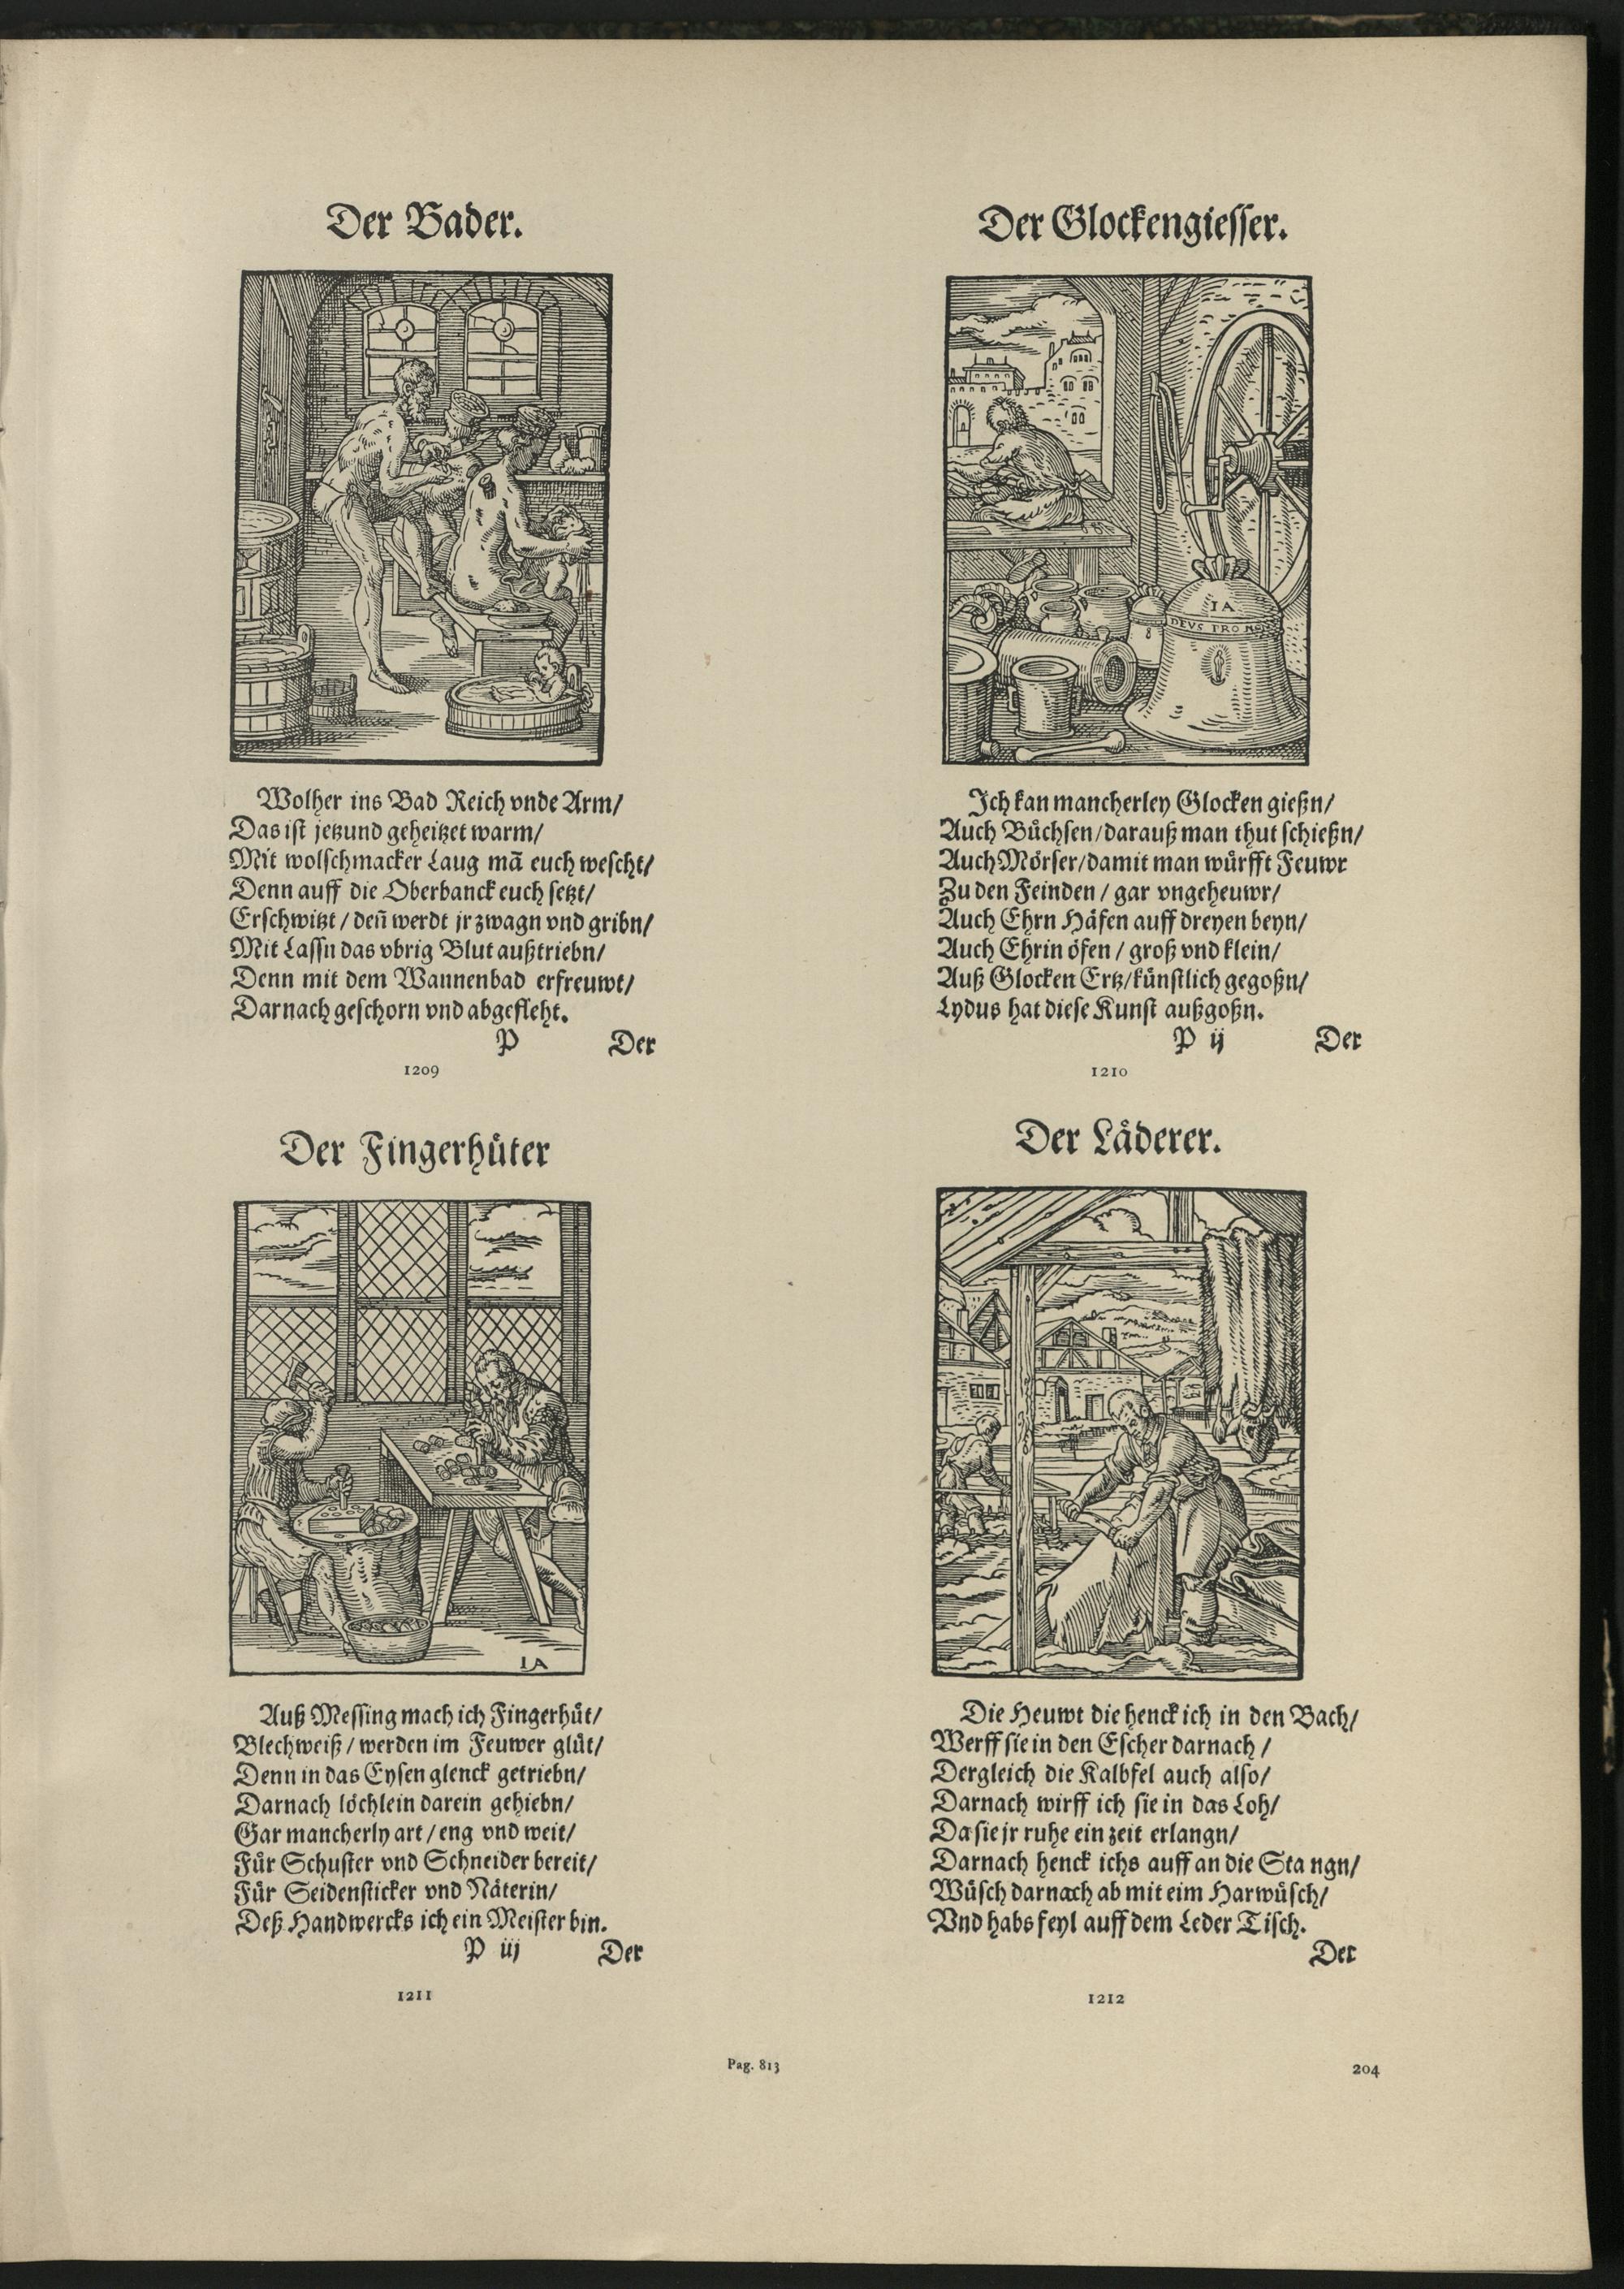 Der Bader.
Wolher ins Bad Reich vnde Arm/
Das ist jetzund geheitzet warm/
Mit wolschmacker Laug mā euch wescht/
Denn auff die Oberbanck euch setzt/
Erschwitzt / deñ werdt jr zwagn vnd gribn/
Mit Lassn das vbrig Blut außtriebn/
Denn mit dem Wannenbad erfreuwt/
Darnach geschorn vnd abgefleht.
P Der
1209
Der Glockengiesser.
IA
DEVS PRO NO
Ich kan mancherley Glocken gießn/
Auch Büchsen/darauß man thut schießn/
Auch Mörser/damit man würfft Feuwr
Zu den Feinden / gar vngeheuwr/
Auch Ehrn Häfen auff dreyen beyn/
Auch Ehrin öfen / groß vnd klein/
Auß Glocken Ertz/künstlich gegoßn/
Lydus hat diese Kunst außgoßn.
P ij Der
1210
Der Fingerhüter
IA
Auß Messing mach ich Fingerhüt/
Blechweiß / werden im Feuwer glüt/
Denn in das Eysen glenck getriebn/
Darnach löchlein darein gehiebn/
Gar mancherly art / eng vnd weit/
Für Schuster vnd Schneider bereit/
Für Seidensticker vnd Näterin/
Deß Handwercks ich ein Meister bin.
P iij Der
1211
Der Läderer.
Die Heuwt die henck ich in den Bach/
Werff sie in den Escher darnach /
Dergleich die Kalbfel auch also/
Darnach wirff ich sie in das Loh/
Da sie jr ruhe ein zeit erlangn/
Darnach henck ichs auff an die Stangn/
Wüsch darnach ab mit eim Harwüsch/
Vnd habs feyl auff dem Leder Tisch.
Der
1212
Pag. 813
204